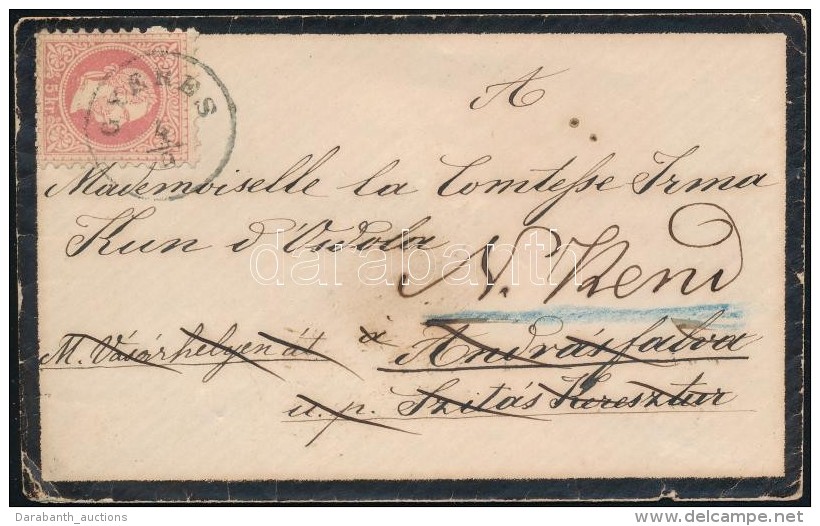 5 kr.
GYERES
A
Mademoiselle la Comtesse Irma
Kun d'Osdola
N. Kend
M. Vásárhelyen át à Andrásfalva
u. p. Szitás Keresztur
darabanth
Darabanth_auctions
delcampe.net